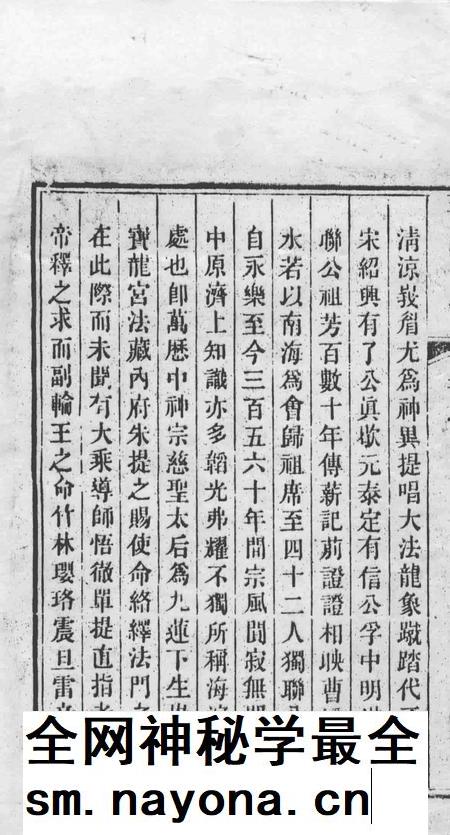 清涼峩眉尤爲神異提唱大法龍象蹴踏代
宋紹興有了公眞歇元泰定有信公孚中明
聯公祖芳百數十年傳薪記莂證證相映曹
水若以南海爲會歸祖席至四十二人獨聯
自永樂至今三百五六十年間宗風閴寂無
中原濟上知識亦多韜光弗耀不獨所稱海
處也即萬歷中神宗慈聖太后爲九蓮下生
寶龍宮法藏內府朱提之賜使命絡繹法門之
在此際而未聞有大乘導師悟徹單提直指
帝釋之求而副輪王之命竹林瓔珞震旦雷
全网神秘学最全
sm.nayona.cn